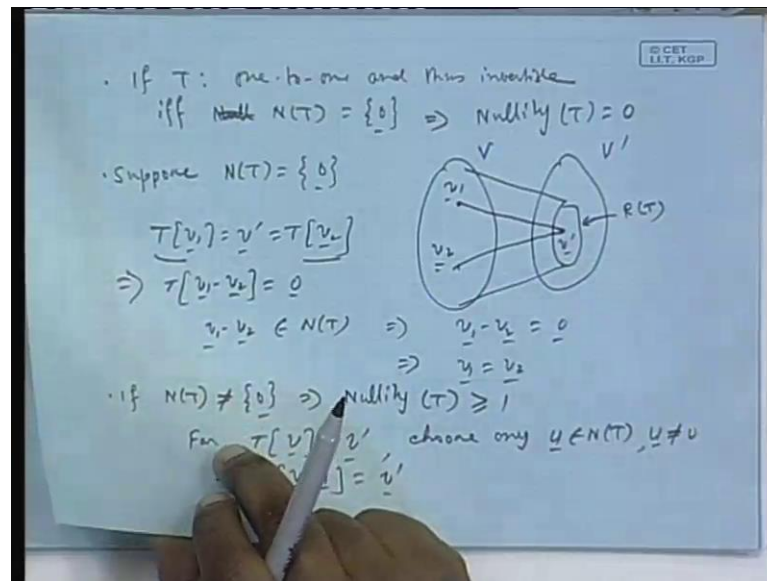 © CET
I.I.T. KGP
• If T : one-to-one and thus invertible
iff N(T) = {0} ⇒ Nullity (T) = 0
• Suppose N(T) = {0}
V V'
v1
v2
v'
R(T)
T[v1] = v' = T[v2]
⇒ T[v1 - v2] = 0
v1 - v2 ∈ N(T) ⇒ v1 - v2 = 0
⇒ v1 = v2
• If N(T) ≠ {0} ⇒ Nullity (T) ≥ 1
For T[v] v', choose any u ∈ N(T), u ≠ 0
] = v'